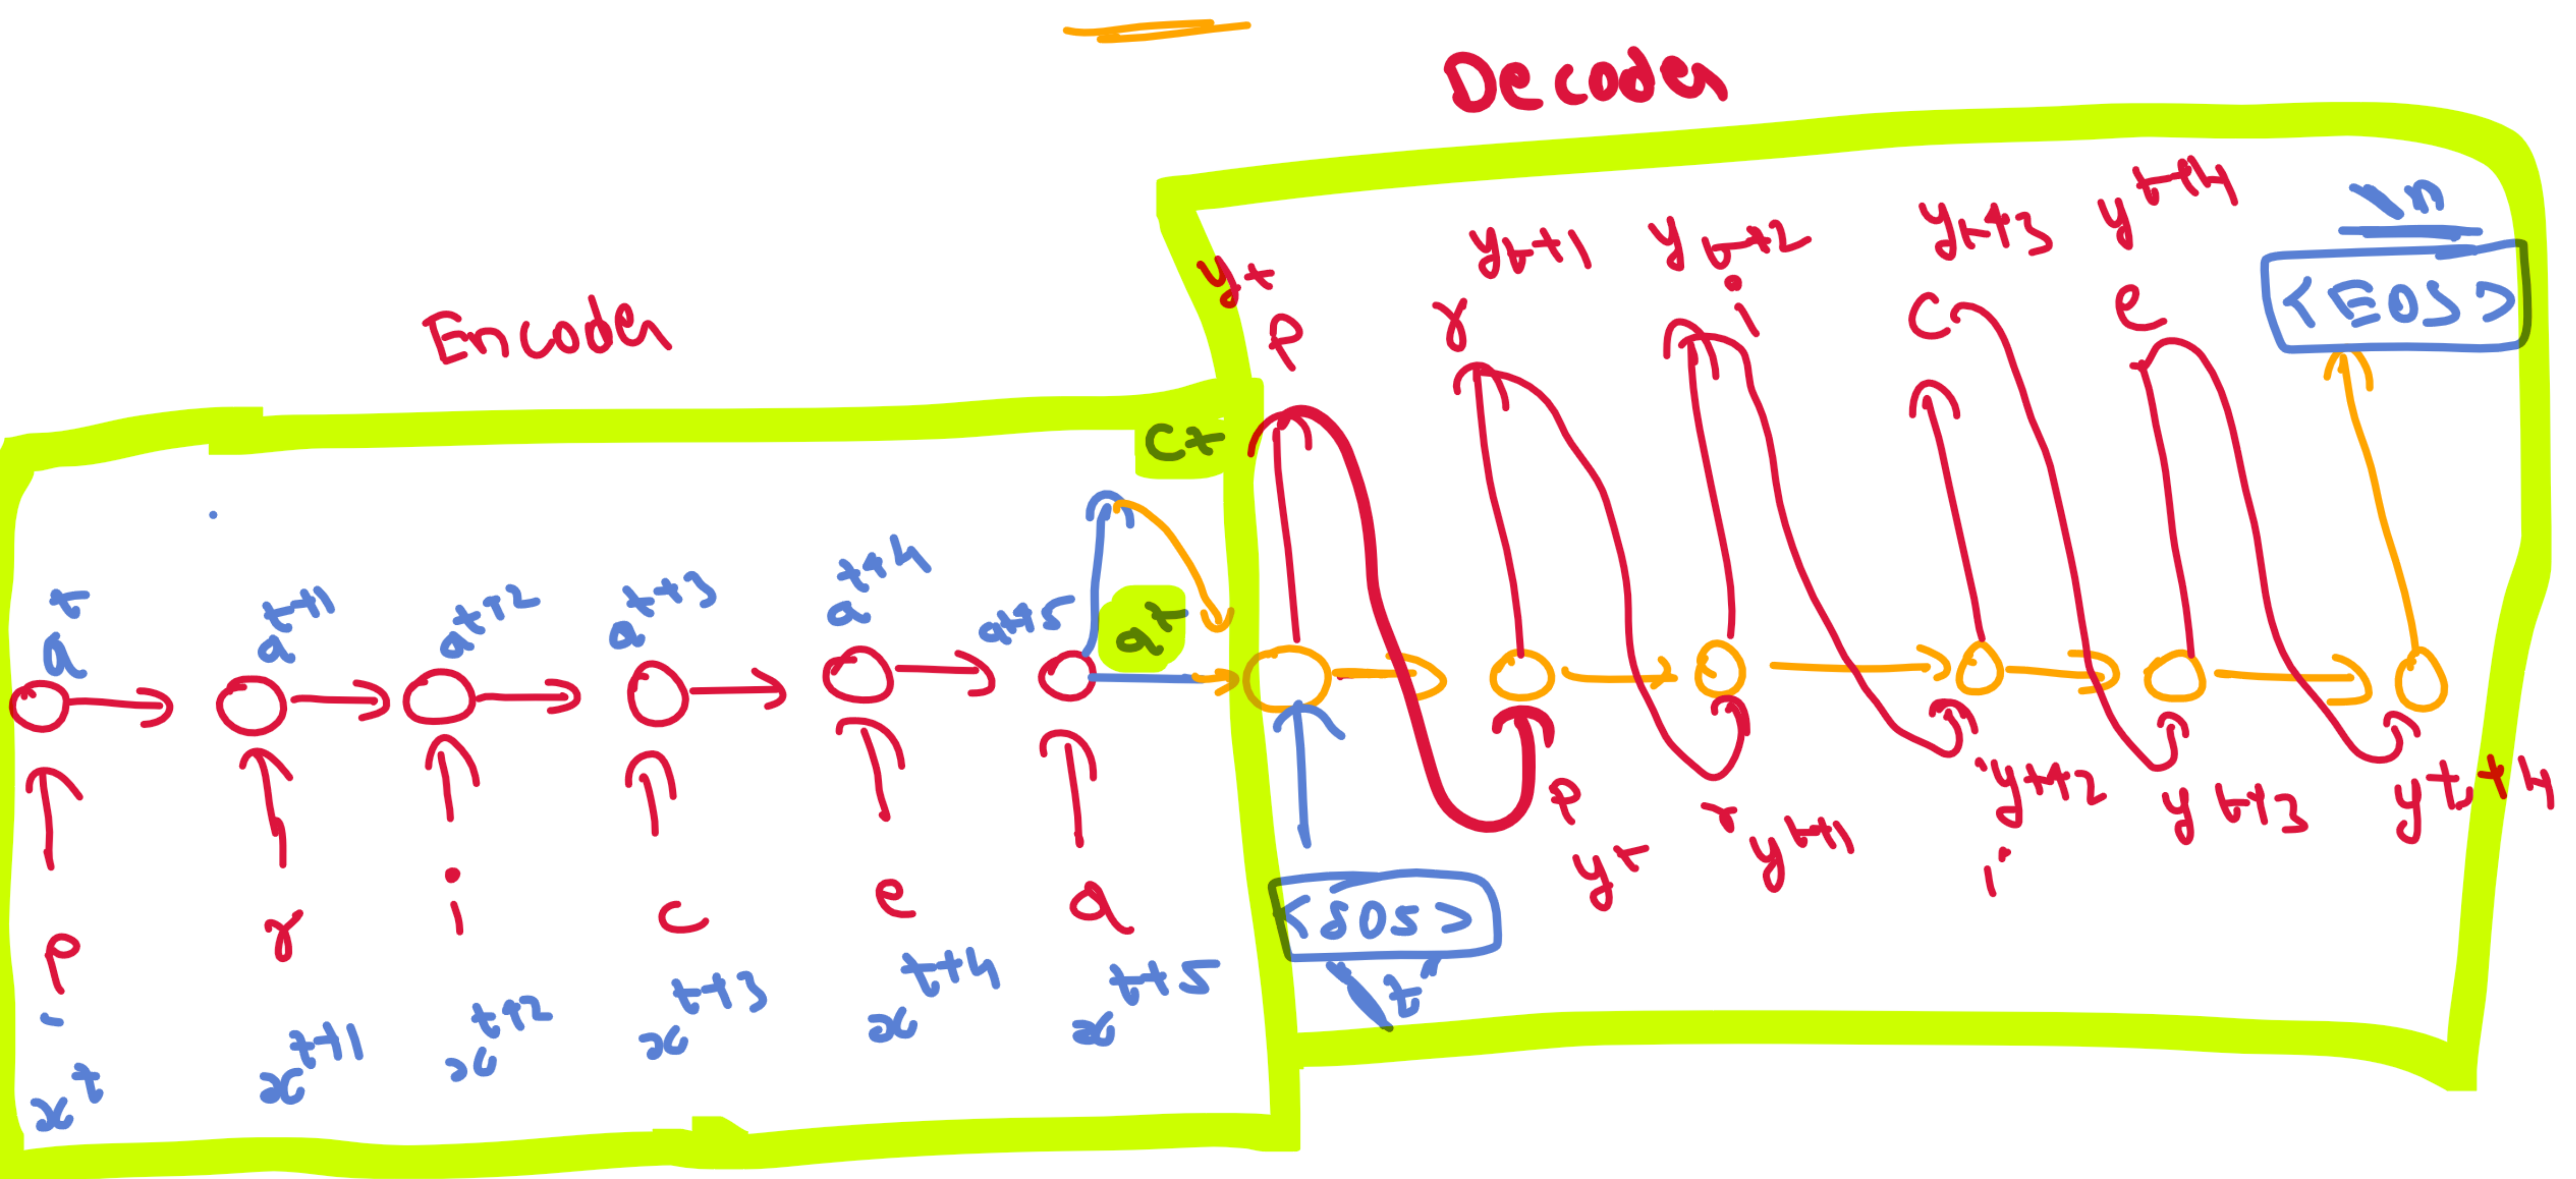 Decoder
Encoder
y^t y^t+1 y^t+2 y^t+3 y^t+4 \n
p r i c e <EOS>
c^t
a^t a^t+1 a^t+2 a^t+3 a^t+4 a^t+5 a^t
p r i c e a
x^t x^t+1 x^t+2 x^t+3 x^t+4 x^t+5
<SOS>
\t
p r i
y^t y^t+1 y^t+2 y^t+3 y^t+4